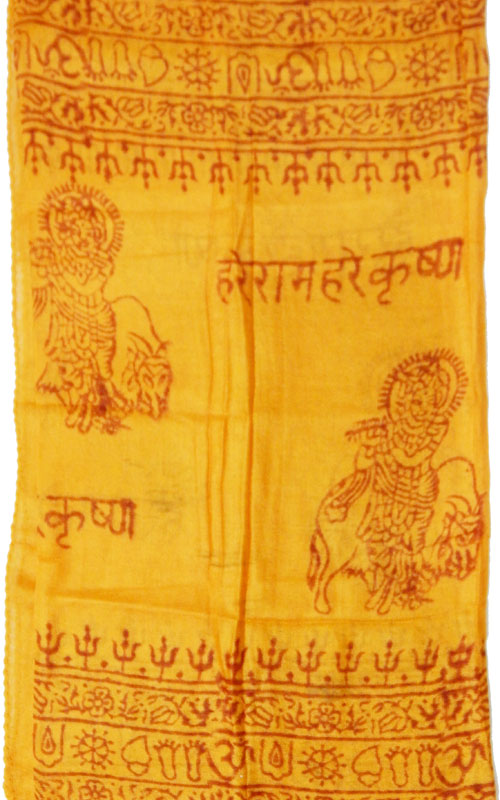 हरेरामहरेकृष्ण
कृष्ण
ॐ